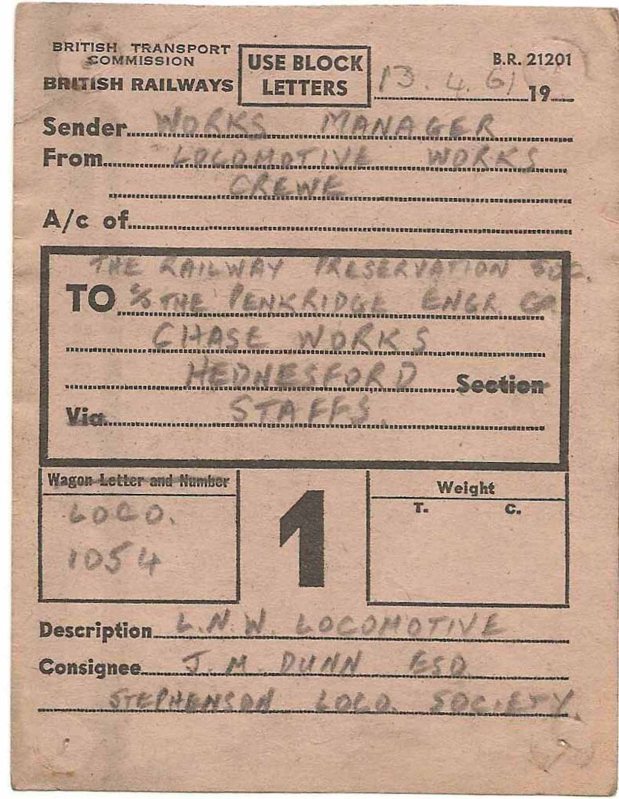 BRITISH TRANSPORT COMMISSION
BRITISH RAILWAYS
USE BLOCK LETTERS
B.R. 21201
13.4.61 19
Sender WORKS MANAGER
From LOCOMOTIVE WORKS
CREWE
A/c of
THE RAILWAY PRESERVATION SOC.
TO C/O THE PENKRIDGE ENGR. CO.
CHASE WORKS
HEDNESFORD Section
Via STAFFS.
Wagon Letter and Number
LOCO.
1054
1
Weight
T. C.
Description L.N.W. LOCOMOTIVE
Consignee J.M. DUNN ESQ
STEPHENSON LOCO. SOCIETY.